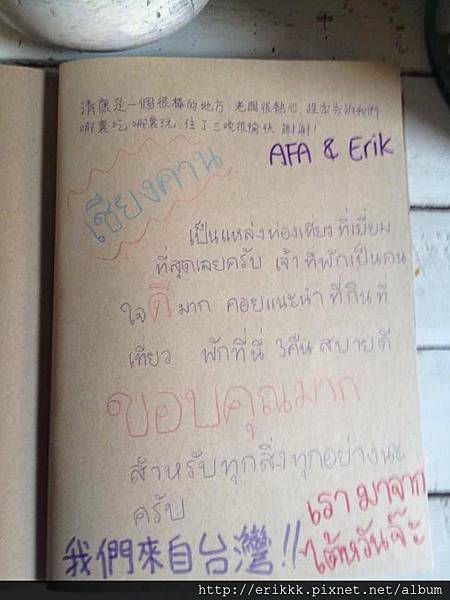 清康是一個很棒的地方 老闆很熱心,經常告訴我們
哪裏吃,哪裏玩 住了三晚很愉快 謝謝!
AFA & Erik
เชียงคาน
เป็นแหล่งท่องเที่ยวที่เยี่ยม
ที่สุดเลยครับ เจ้าที่พักเป็นคน
ใจดีมาก คอยแนะนำ ที่กิน ที่
เที่ยว พักที่นี่ 3คืน สบายดี
ขอบคุณมาก
สำหรับทุกสิ่งทุกอย่างนะ
ครับ
เรามาจาก
ไต้หวันจ๊ะ
我們來自台灣!!
http://erikkk.pixnet.net/album